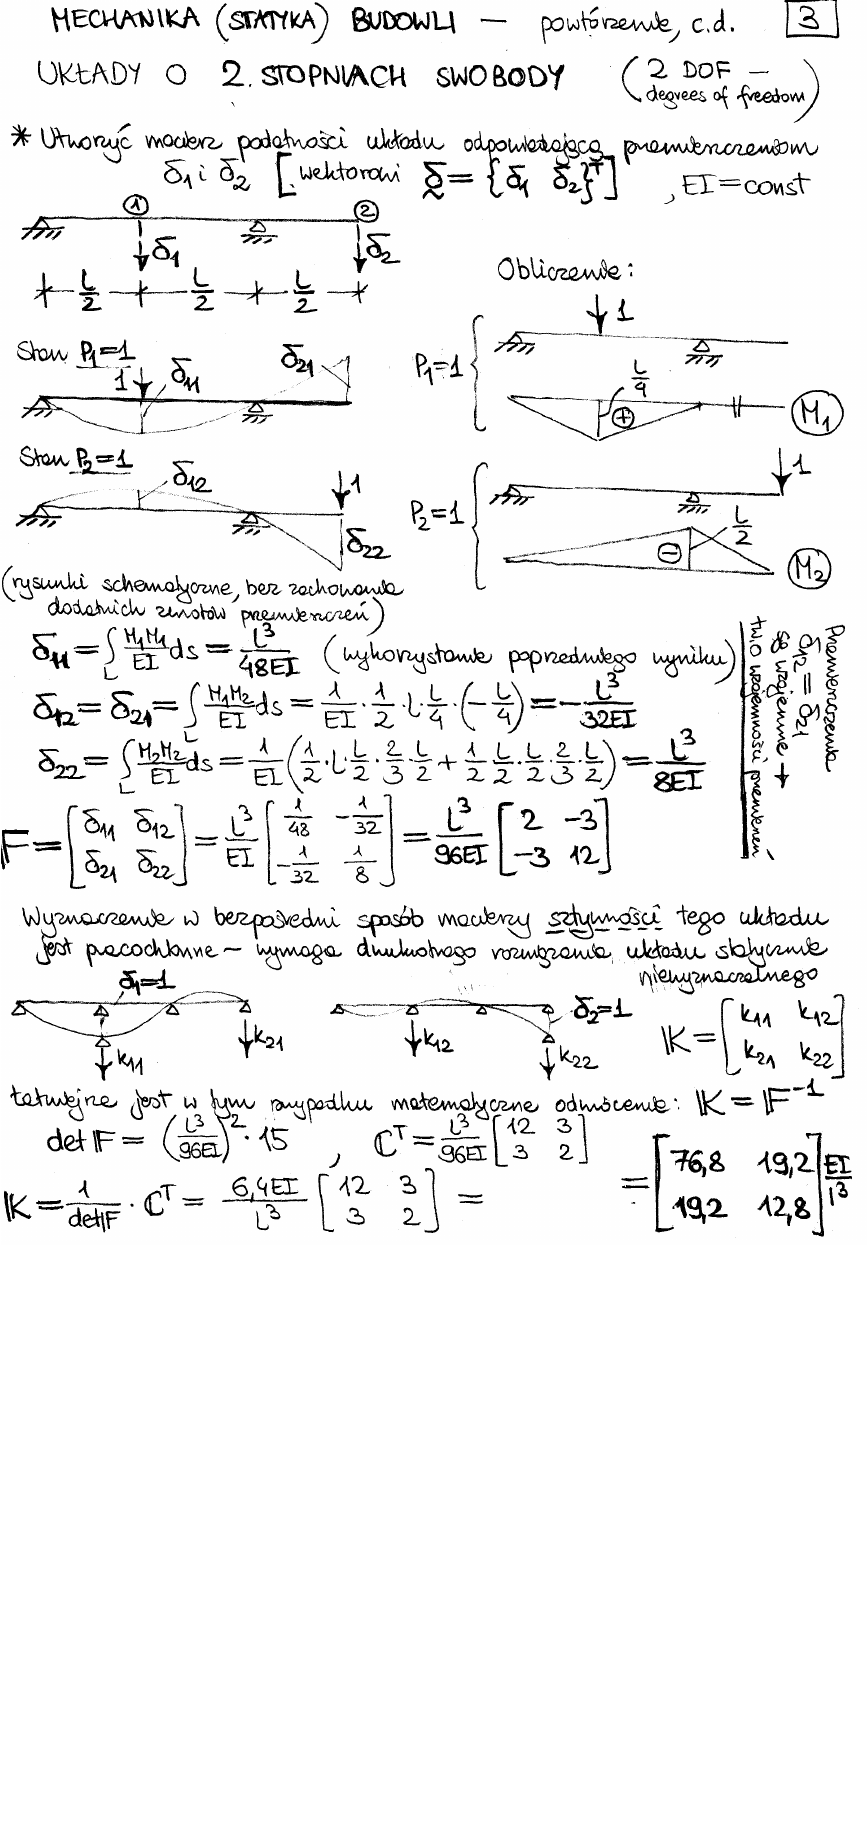 MECHANIKA (STATYKA) BUDOWLI — powtórzenie, c.d. 3
UKŁADY O 2. STOPNIACH SWOBODY (2 DOF — degrees of freedom)
* Utworzyć macierz podatności układu odpowiadającą przemieszczeniom
δ1 i δ2 [wektorowi δ = {δ1 δ2}ᵀ], EI = const
① ②
δ1 δ2
L/2 L/2 L/2
Obliczenie:
Stan P1=1
1 δ11 δ21
P1=1 { 1
L/4 + M1
Stan P2=1
δ12 1 δ22
P2=1 { 1
L/2 − M2
(rysunki schematyczne, bez zachowania
dodatnich zwrotów przemieszczeń)
δ11 = ∫L M1M1/EI ds = L³/48EI (wykorzystanie poprzedniego wyniku)
δ12 = δ21 = ∫L M1M2/EI ds = 1/EI · 1/2 · L · L/4 · (−L/4) = −L³/32EI
δ22 = ∫L M2M2/EI ds = 1/EI (1/2 · L · L/2 · 2/3 · L/2 + 1/2 · L/2 · L/2 · 2/3 · L/2) = L³/8EI
Przemieszczenia
δ12 = δ21
są wzajemne →
tw. o wzajemności przemieszczeń
F = [δ11 δ12; δ21 δ22] = L³/EI [1/48 −1/32; −1/32 1/8] = L³/96EI [2 −3; −3 12]
Wyznaczenie w bezpośredni sposób macierzy sztywności tego układu
jest pracochłonne – wymaga dwukrotnego rozwiązania układu statycznie
niewyznaczalnego
δ1=1 k11 k21
δ2=1 k12 k22
K = [k11 k12; k21 k22]
Łatwiejsze jest w tym przypadku matematyczne odwrócenie: K = F⁻¹
det F = (L³/96EI)² · 15 , Cᵀ = L³/96EI [12 3; 3 2]
K = 1/detF · Cᵀ = 6,4EI/L³ [12 3; 3 2] = = [76,8 19,2; 19,2 12,8] EI/l³